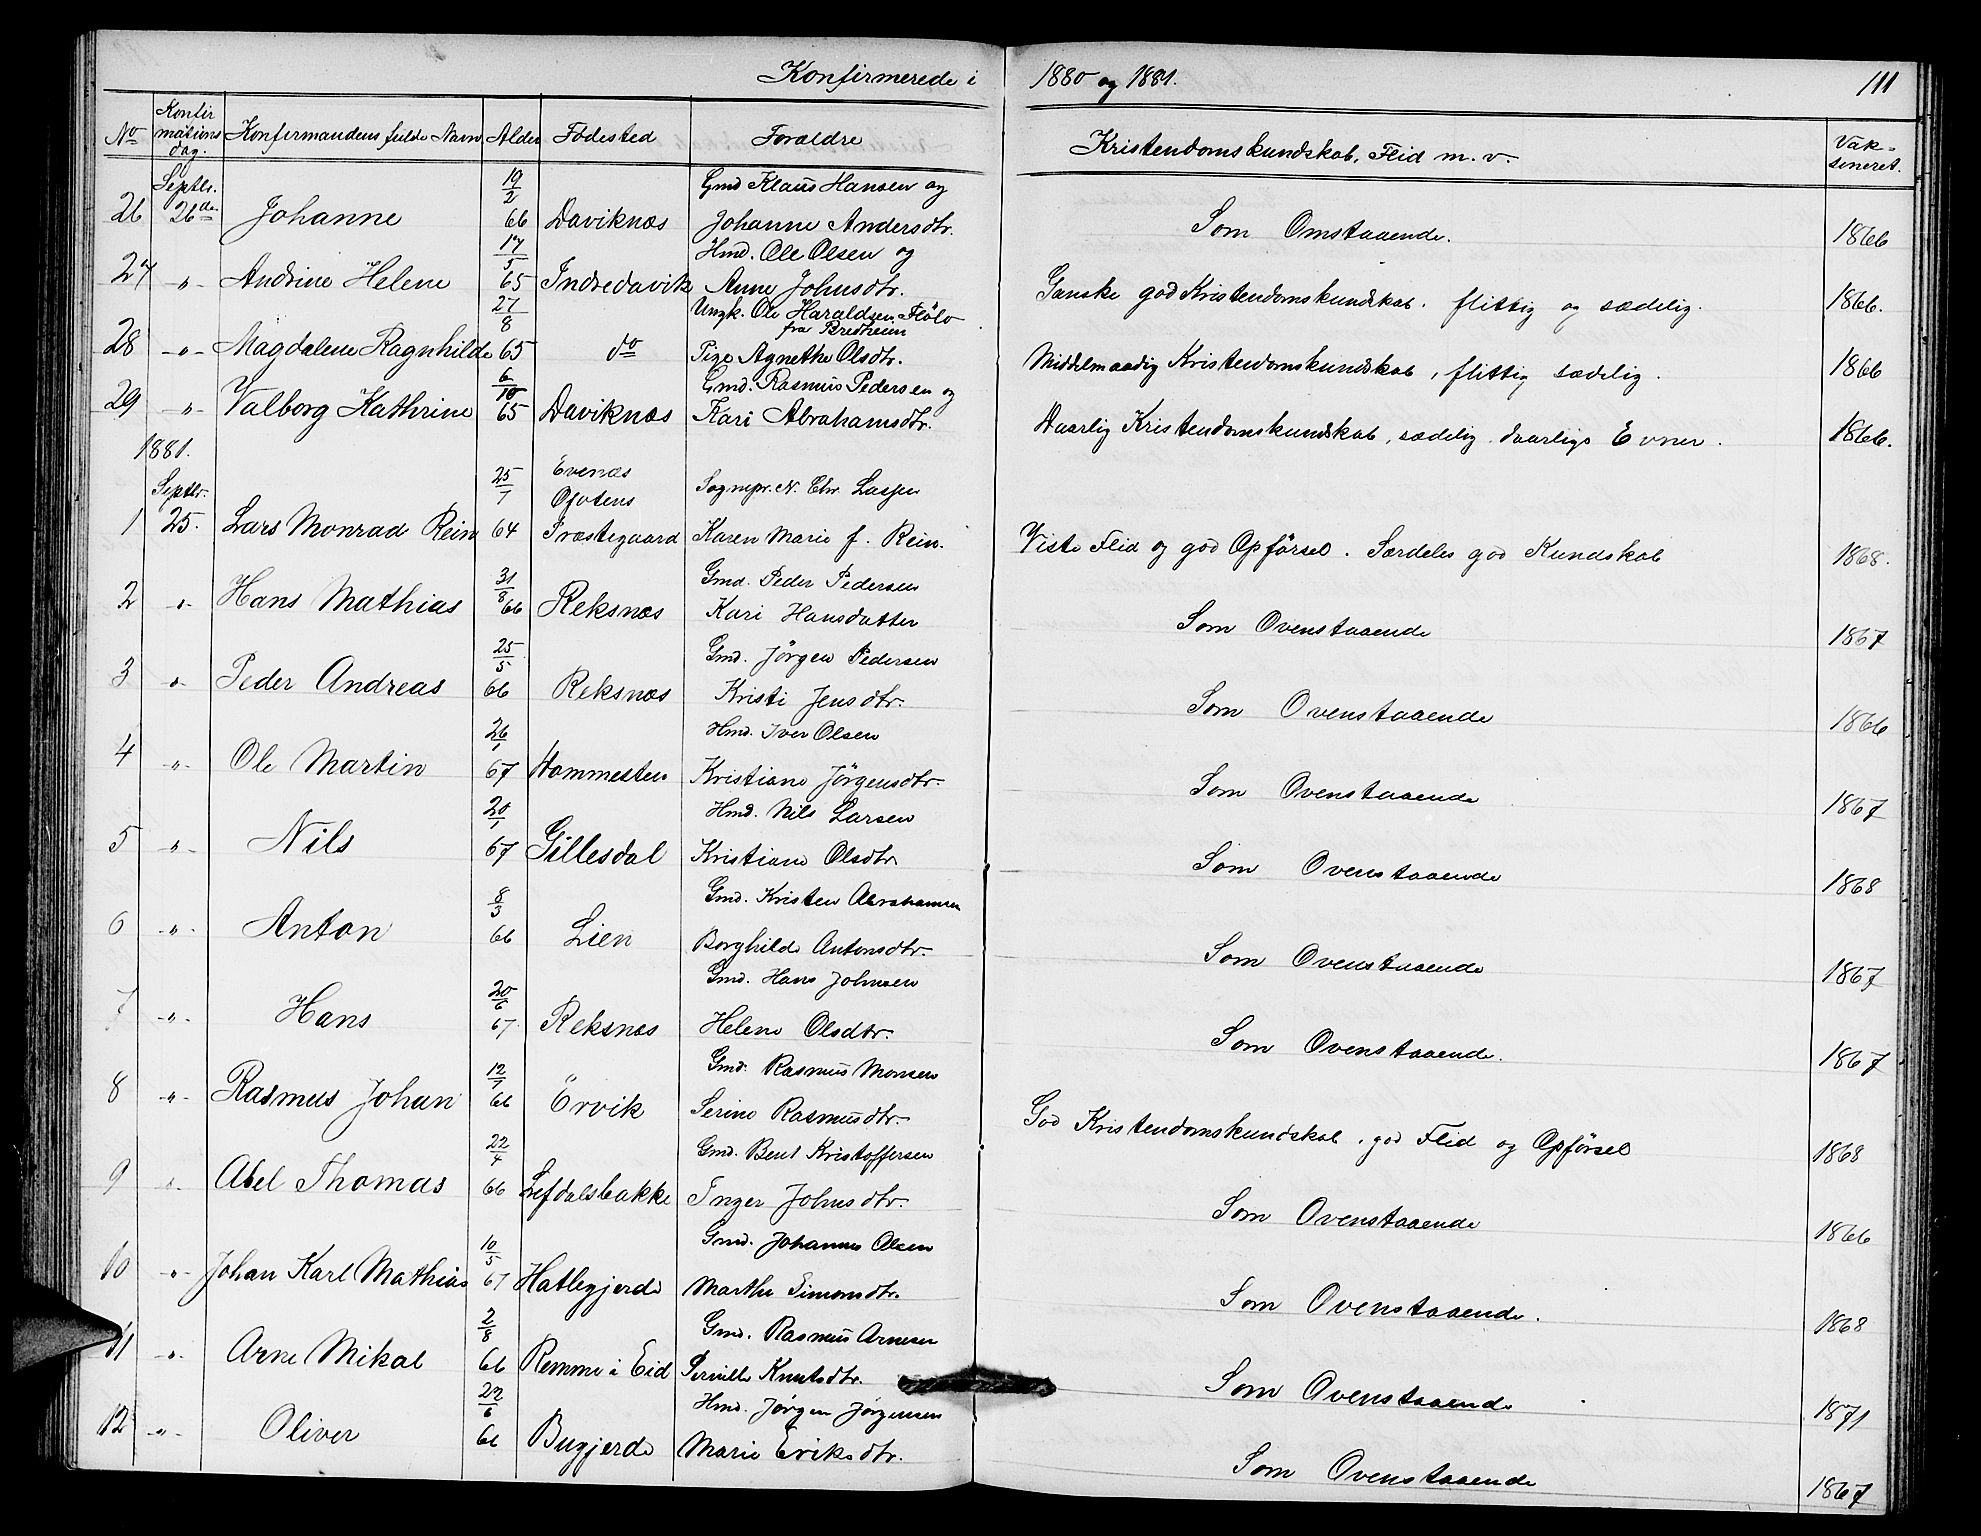 Konfirmerede i 1880 og 1881. 111
No Konfirmationsdag. Konfirmandens fulde Navn Alder Fødested Forældre Kristendomskundskab, Flid m. v. Vaksineret.
Septbr. 19/2 Gmd Klaus Hansen og
26 26de Johanne 66 Daviknæs Johanne Andersdtr. Som Omstaaende. 1866
17/5 Hmd. Ole Olsen og
27 -"- Andrine Helene 65 Indredavik Anne Johnsdtr. Ganske god Kristendomskundskab. flittig og sædelig. 1866.
27/8 Ungk. Ole Haraldsen Flølo
fra Bredheim
28 -"- Magdalene Ragnhilde 65 do Pige Agnethe Olsdtr. Middelmaadig Kristendomskundskab, flittig sædelig. 1866
6/10 Gmd. Rasmus Pedersen og
29 -"- Valborg Kathrine 65 Daviknæs Kari Abrahamsdtr. Daarlig Kristendomskundskab, sædelig. daarlige Evner. 1866.
1881.
Septbr. 25/7 Evenæs
Ofotens Sognepr. N. Chr. Lassen
1 25. Lars Monrad Rein 64 Præstegaard Karen Marie f. Rein. Viste Flid og god Opførsel. Særdeles god Kundskab 1868.
31/8 Gmd. Peder Pedersen
2 -"- Hans Mathias 66 Reksnæs Kari Hansdatter Som Ovenstaaende 1867
25/5 Gmd. Jørgen Pedersen
3 " Peder Andreas 66 Reksnæs Kristi Jensdtr. Som Ovenstaaende 1866
26/1 Hmd. Iver Olsen
4 -"- Ole Martin 67 Hommesten Kristiane Jørgensdtr. Som Ovenstaaende 1867
20/1 Hmd. Nils Larsen
5 -"- Nils 67 Gillesdal Kristiane Olsdtr. Som Ovenstaaende 1868
8/3 Gmd. Kristen Abrahamsen
6 -"- Anton 66 Lien Borghilde Antonsdtr. Som Ovenstaaende 1867
20/6 Gmd. Hans Johnsen
7 -"- Hans 67 Reksnæs Helene Olsdtr. Som Ovenstaaende. 1867
12/1 Gmd. Rasmus Monsen
8 -"- Rasmus Johan 66 Ervik Serine Rasmusdtr. God Kristendomskundskab. god Flid og Opførsel 1868
22/4 Gmd. Bent Kristoffersen
9 " Abel Thomas 66 Lefdalsbakke Inger Johnsdtr. Som Ovenstaaende 1866
10/5 Gmd. Johannes Olsen
10 -"- Johan Karl Mathias 67 Hatlegjerde Marthe Simonsdtr. Som Ovenstaaende. 1868
2/8 Gmd. Rasmus Arnesen
11 -"- Arne Mikal 66 Remme i Eid Pernille Knutsdtr. Som Ovenstaaende 1871
22/6 Hmd. Jørgen Jørgensen
12 -"- Oliver 66 Bugjerde Marie Eriksdtr. Som Ovenstaaende 1867